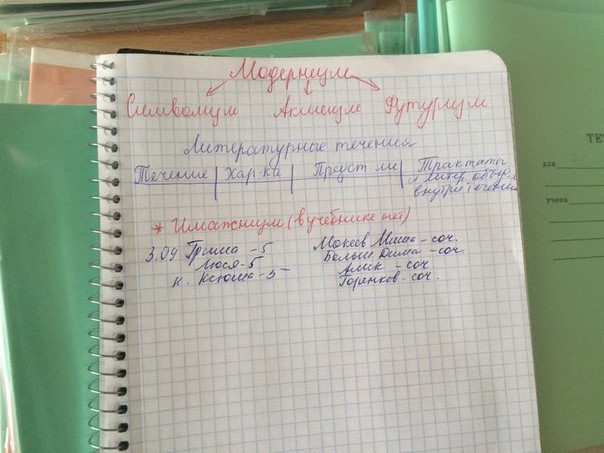 Модернизм
Символизм Акмеизм Футуризм
Литературные течения
Течение | Хар-ка | Предст-ли | Трактаты
и литер. объед.
внутри течения
* Имажинизм (в учебнике нет)
3.09 Гриша - 5 Мокеев Миша - соч.
Люся - 5 Больш. Дима - соч.
к. Ксюша - 5 Алик - соч.
Горянков - соч.
ТЕ
для
учени